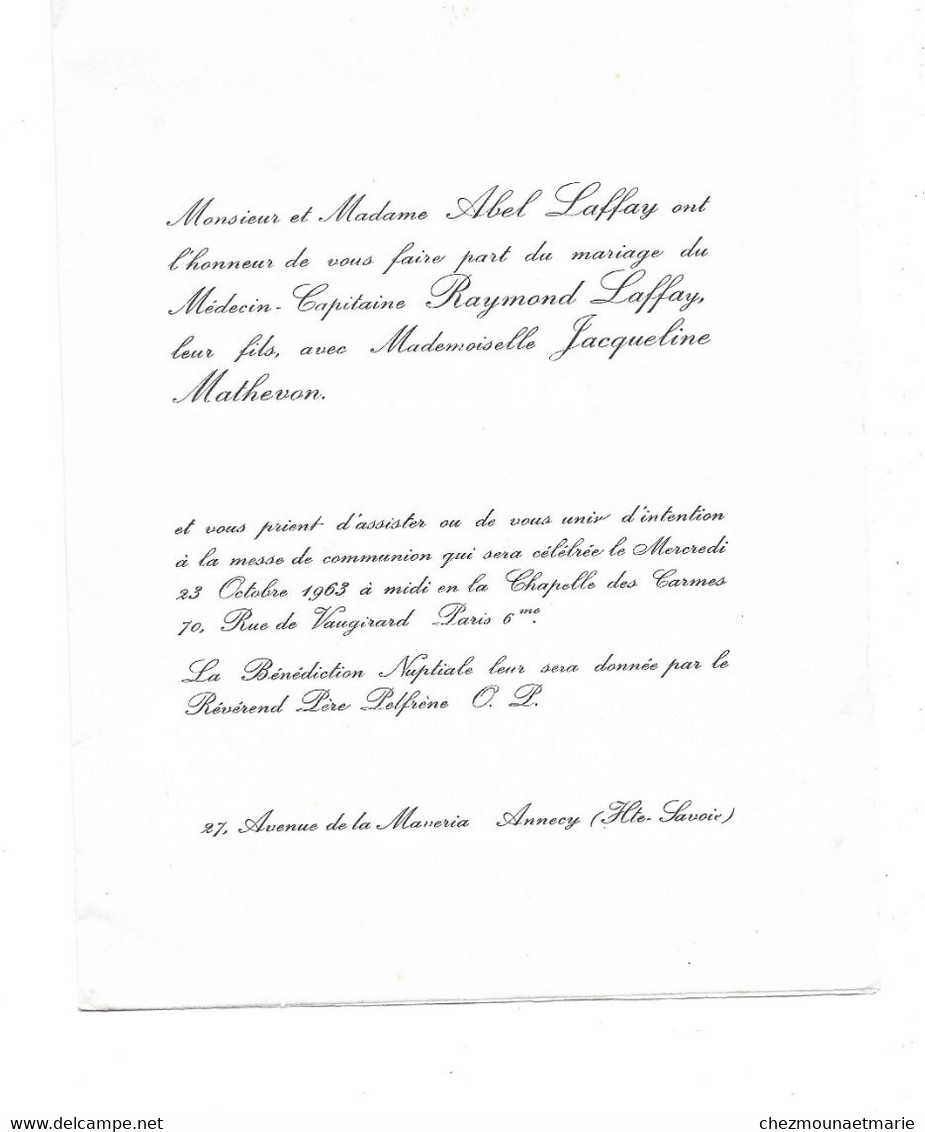 Monsieur et Madame Abel Laffay ont
l'honneur de vous faire part du mariage du
Médecin-Capitaine Raymond Laffay,
leur fils, avec Mademoiselle Jacqueline
Mathevon.
et vous prient d'assister ou de vous unir d'intention
à la messe de communion qui sera célébrée le Mercredi
23 Octobre 1963 à midi en la Chapelle des Carmes
70, Rue de Vaugirard Paris 6me.
La Bénédiction Nuptiale leur sera donnée par le
Révérend Père Pelfrène O. P.
27, Avenue de la Maveria Annecy (Hte-Savoie)
delcampe.net
chezmounaetmarie